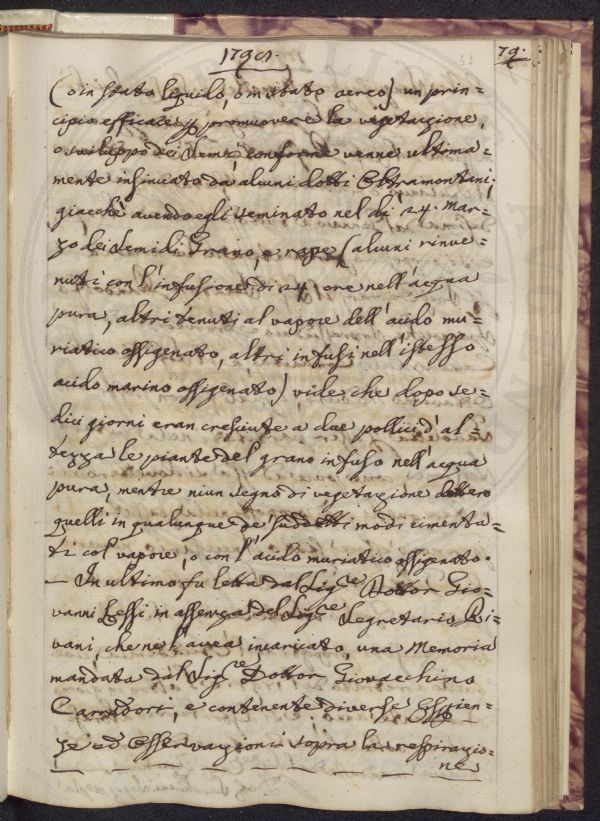 1798. 79.
(o in stato liquido, o in stato aereo) un prin=
cipio efficace p promuovere la vegetazione,
o sviluppo dei semi conforme venne ultima=
mente insinuato da alcuni dotti Oltramontani;
giacchè avendo egli seminato nel dì 24. Mar=
zo dei semi di Grano, e rape (alcuni rinve=
nuti con l'infusione di 24. ore nell'acqua
pura, altri tenuti al vapore dell'acido mu=
riatico ossigenato, altri infusi nell'istesso
acido marino ossigenato) vide che dopo se=
dici giorni eran cresciute a due pollici d'al=
tezza le piante del grano infuso nell'acqua
pura, mentre niun segno di vegetazione dettero
quelli in qualunque de' suddetti modi cimenta=
ti col vapore, o con l'acido muriatico ossigenato.
— In ultimo fu letta dal Sig.re Dottor Gio=
vanni Lessi in assenza del Sig.re Segretario Ri=
vani, che ne l'avea incaricato, una Memoria
mandata dal Sig.re Dottor Giovacchino
Carradori, e contenente diverse Esperien=
ze ed Osservazioni sopra la respirazio=
ne